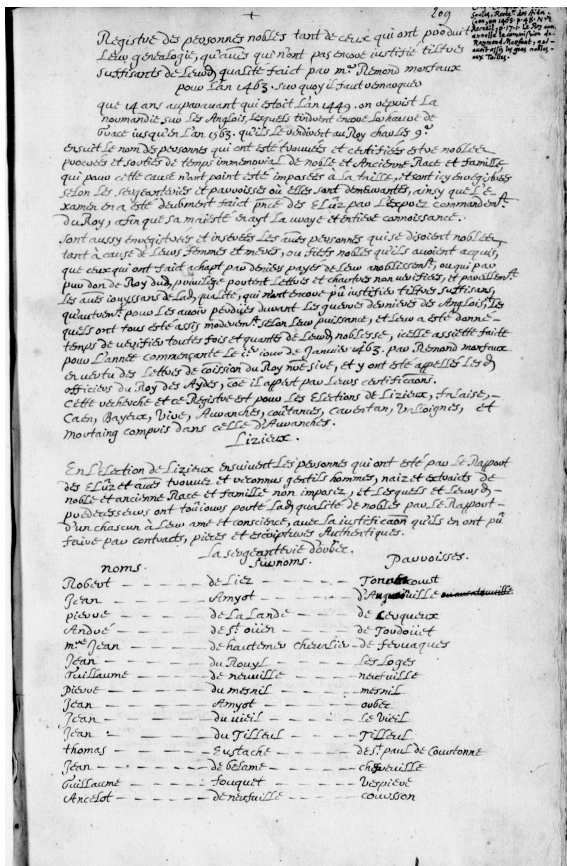 209
Registre des personnes nobles tant de ceux qui ont produit
Leur genealogie, qu'autres qui n'ont pas encore justifié tiltres
suffisants de Leurd. qualité faict par mre. Remond monfaux
pour L'an 1463. sur quoy il faut remarquer
que 14 ans auparavant qui estoit L'an 1449. on reprist La
normandie sur Les Anglois, Lesquels tindrent encore Lo havre de
Grace jusqu'en L'an 1563. qu'ils Le rendirent au Roy charles 9e
ensuit Le nom des personnes qui ont esté trouvées et certifiées estre nobles
procreés et sortiés de temps immemorial de noble et Ancienne Race et famille
qui pour cette cause n'ont point esté imposées à La taille, et sont icy enregistrées
selon Les sergeanteries et parroisses où elles sont demeurantes, ainsy que L'e
xamen en a esté deubment faict par Les Elûz par L'exprez commandemt.
du Roy, afin que sa maiesté en ayt La vraye et entiere connoissance.
Sont aussy enregistrées et inserées Les autres personnes qui se disoient nobles,
tant à cause de Leurs femmes et meres, ou fiefs nobles qu'ils avoient acquis,
que ceux qui ont faict achapt par deniers payez de Leur anoblissemt. ou qui par
pur don de Roy dud. privilege portent Lettres et chartres non verifiées, et pareillemt.
Les autres jouyssans de Lad. qualité, qui n'ont encore pû justifier tiltres suffisans,
qu'autremt. pour Les avoir perdües durant Les guerres dernieres des Anglois. Les
quels ont tous esté assis moderemt. selon Leur puissance, et Leur a esté donné
temps de verifier toutes fois et quantes de Leurd. noblesse, icelle assiette faicte
pour L'année commençante Le 1er jour de Janvier 1463. par Remond monfaux
en vertu des Lettres de coission du Roy nre sire, et y ont esté appelles Les d.
officiers du Roy des Aydes, coe il appert par Leurs certificaons.
Cette recherche et ce Registre est pour Les Elections de Lizieux, falaise,
Caen, Bayeux, Vire, Avranches, coûtances, carentan, Valoignes, et
mortaing compris dans celle d'Avranches.
Lizieux.
En L'election de Lizieux ensuivent Les personnes qui ont esté par Le Rapport
des Elûz et autres trouvez et reconnus gentils hommes, naiz et extraicts de
noble et ancienne Race et famille non imposez, et Lesquels et Leurs d.
predecesseurs ont toûjours porté Lad. qualité de nobles par Le Rapport
d'un chascun à Leur ame et conscience, avec La justificaon qu'ils en ont pû
faire par contracts, pieces et escriptures Authentiques.
La sergeanterie d'orbec.
noms. surnoms. Parroisses.
Robert de Liez Tonnancourt
Jean Amyot d'Angouville
pierre de La Lande de Cerqueux
André de St. oüen de Tordoüet
mre. Jean de hautemer chevalier de fervaques
Jean du Rouyl Les Loges
Guillaume de neuville neufville
pierre du mesnil mesnil
Jean Amyot orbec
Jean du vieil Le Vieil
Jean du Tilleul Tilleul
thomas Eustache de St. paul de Courtonne
Jean de belame cheffreville
Guillaume fouquet Vespiere
Ancelot de neufville courson